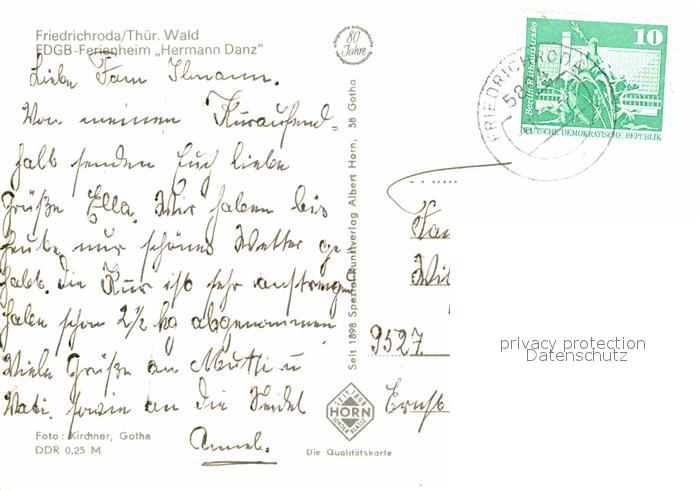 Friedrichroda/Thür. Wald
FDGB-Ferienheim „Hermann Danz"
80 Jahre
Liebe Fam Ilmann.
Von meinen Kuraufent-
halt senden Euch liebe
Grüße Ella. Wir haben bis
heute nur schönes Wetter ge-
habt. die Kur ist sehr anstrengen
habe schon 2½ kg abgenommen
Viele Grüße an Mutti u
Vati. sowie an die Seidel
Foto: Kirchner, Gotha
DDR 0,25 M
Seit 1898 Spezial-Kunstverlag Albert Horn, 58 Gotha
SEIT 1898
HORN
Die Qualitätskarte
Berlin, Rathausstraße
10
DEUTSCHE DEMOKRATISCHE REPUBLIK
FRIEDRICHRODA
58
9527
Ernst
privacy protection
Datenschutz